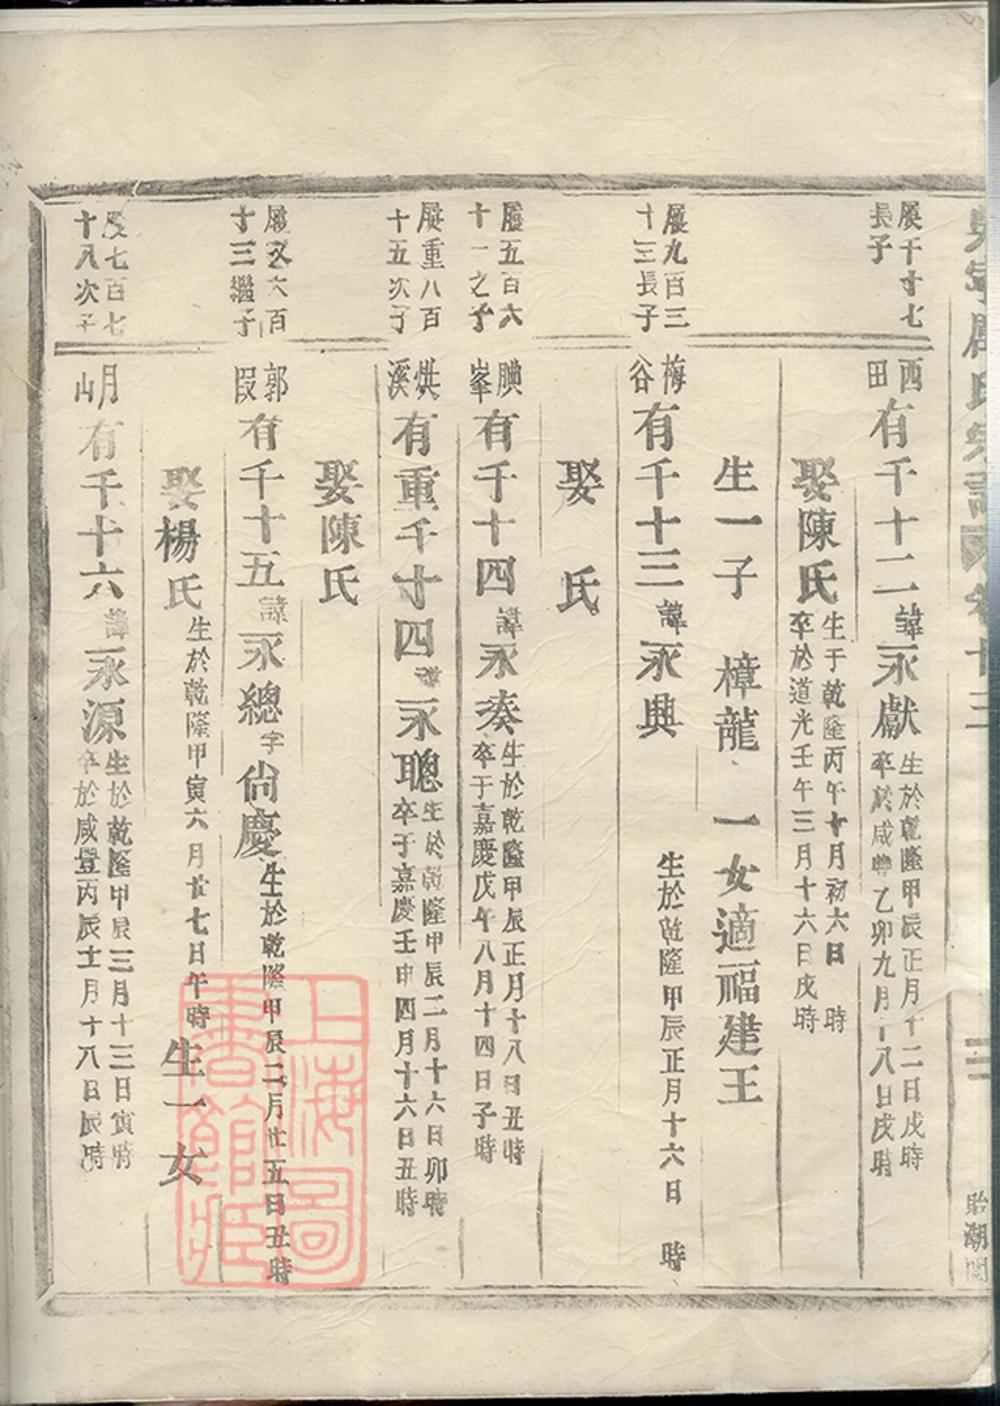 展千十七
長子
西田
有千十二諱永獻
生於乾隆甲辰正月十二日戌時
卒於咸豐乙卯九月十八日戌時
娶陳氏
生于乾隆丙午十月初六日 時
卒於道光壬午三月十六日戌時
生一子 樟龍 一女適福建王
展九百三
十三長子
梅谷
有千十三諱永興
生於乾隆甲辰正月十六日 時
娶 氏
展五百六
十一之子
腆峯
有千十四諱永湊
生於乾隆甲辰正月十八日丑時
卒于嘉慶戊午八月十四日子時
展重八百
十五次子
烘溪
有重千十四諱永聰
生於乾隆甲辰二月十六日卯時
卒于嘉慶壬申四月十六日丑時
娶陳氏
六百
十三繼子
郭
有千十五諱永總字尙慶
生於乾隆甲辰二月廿五日丑時
娶楊氏
生於乾隆甲寅六月廿七日午時
生一女
展七百七
十八次子
明山
有千十六諱永源
生於乾隆甲辰三月十三日寅時
卒於咸豐丙辰十一月十八日辰時
上海圖
書館藏